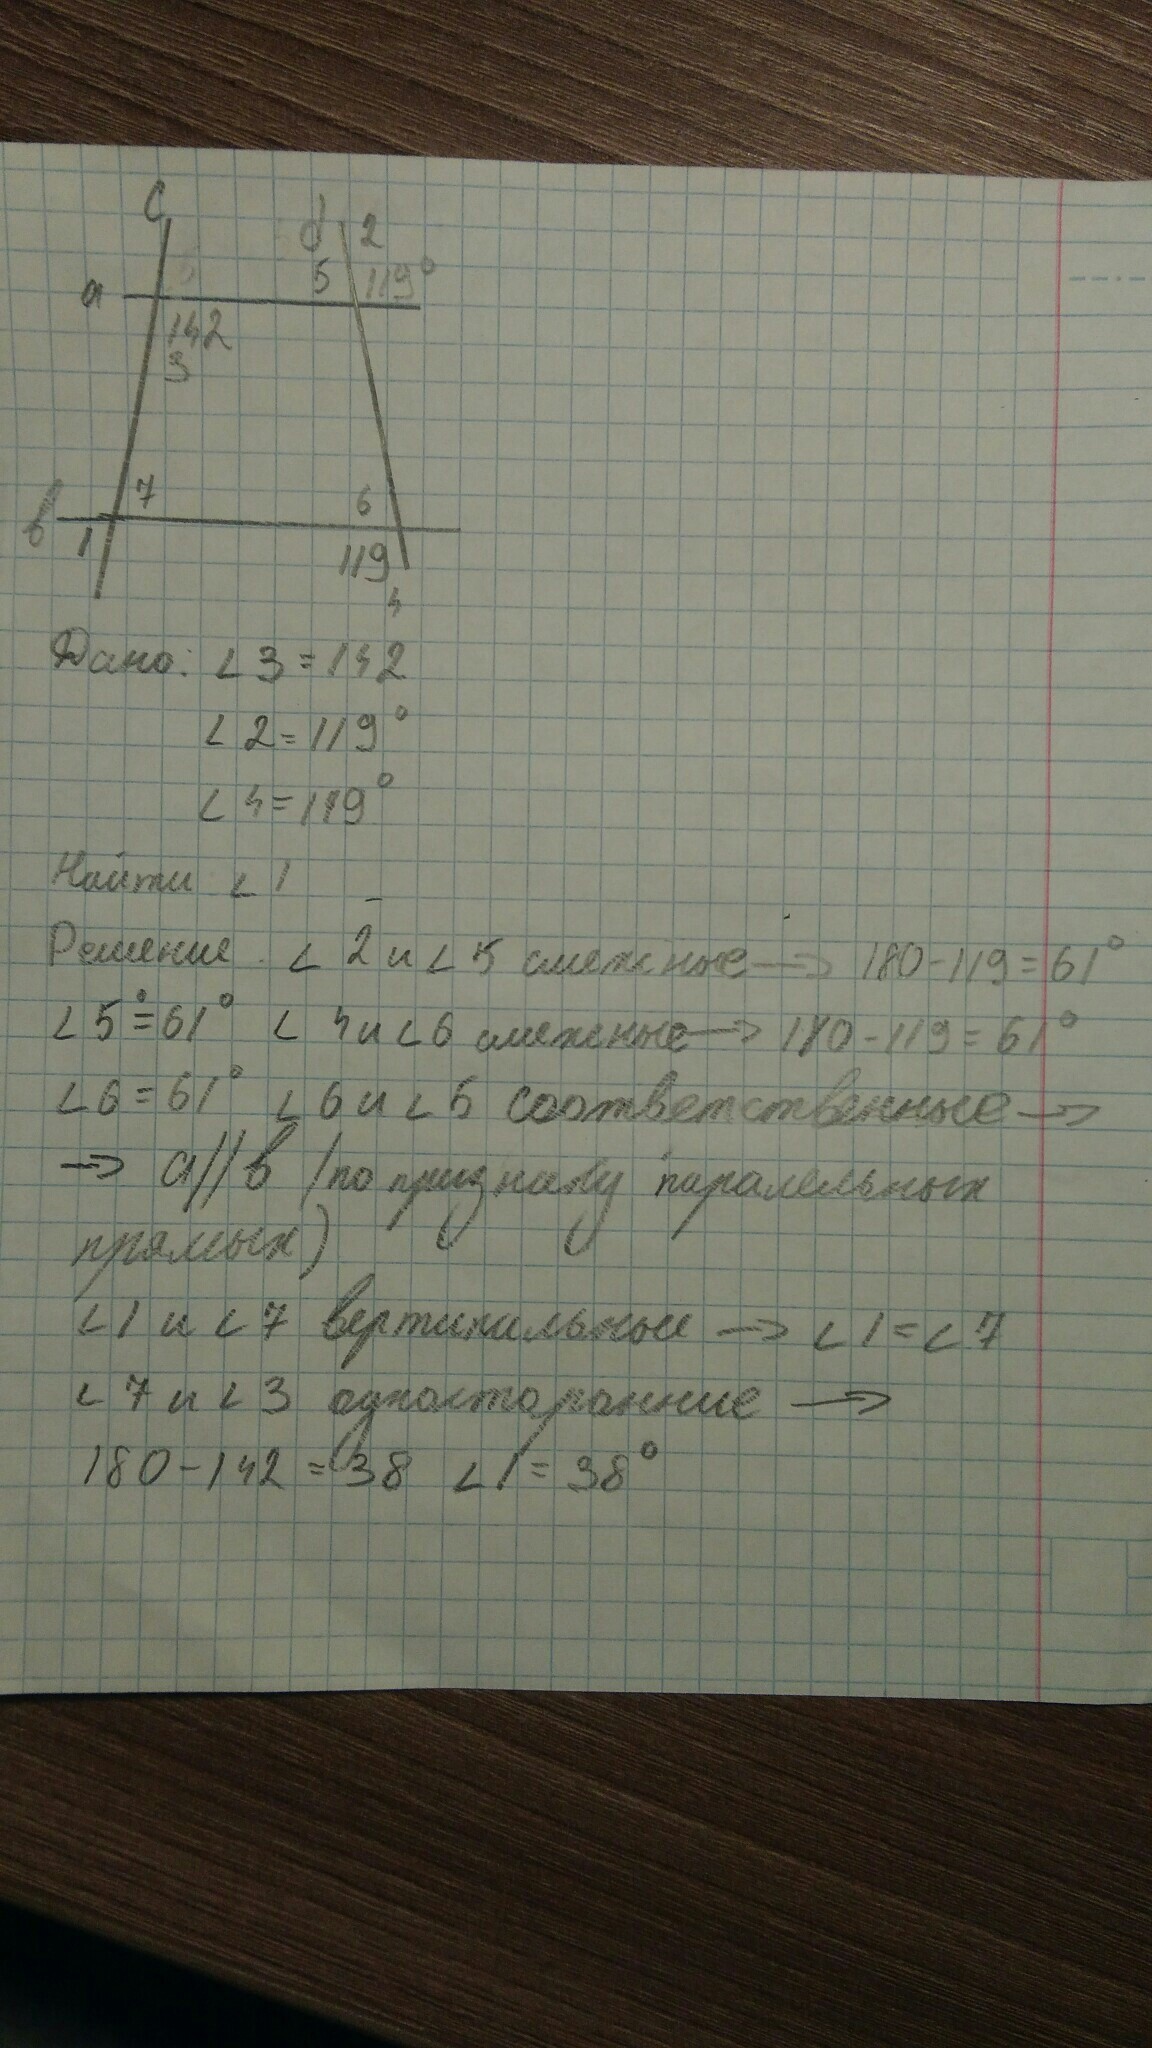 c d 2
a 5 119°
142
3
7 6
в 1 119
4
Дано: ∠3=142
∠2=119°
∠4=119°
Найти ∠1
Решение. ∠2 и ∠5 смежные → 180-119=61°
∠5=61° ∠4 и ∠6 смежные → 180-119=61°
∠6=61° ∠6 и ∠5 соответственные →
→ a//в (по признаку паралельных
прямых)
∠1 и ∠7 вертикальные → ∠1=∠7
∠7 и ∠3 односторонние →
180-142=38 ∠1=38°